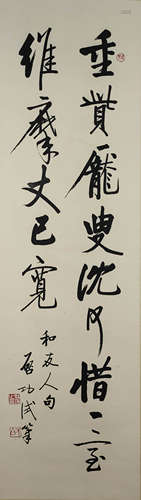 垂赞龐叟沈何惜一至
維摩丈已寬
和友人句
启功試筆